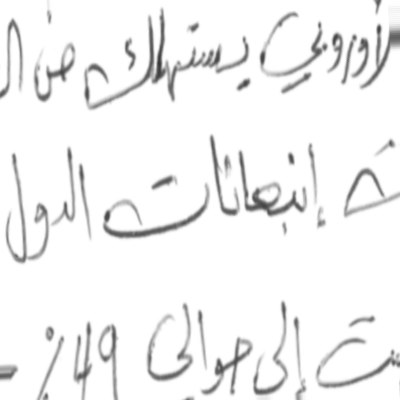 لأوروبي يستهلك من ا
إنبعاثات الدول
إلى حوالي 49%